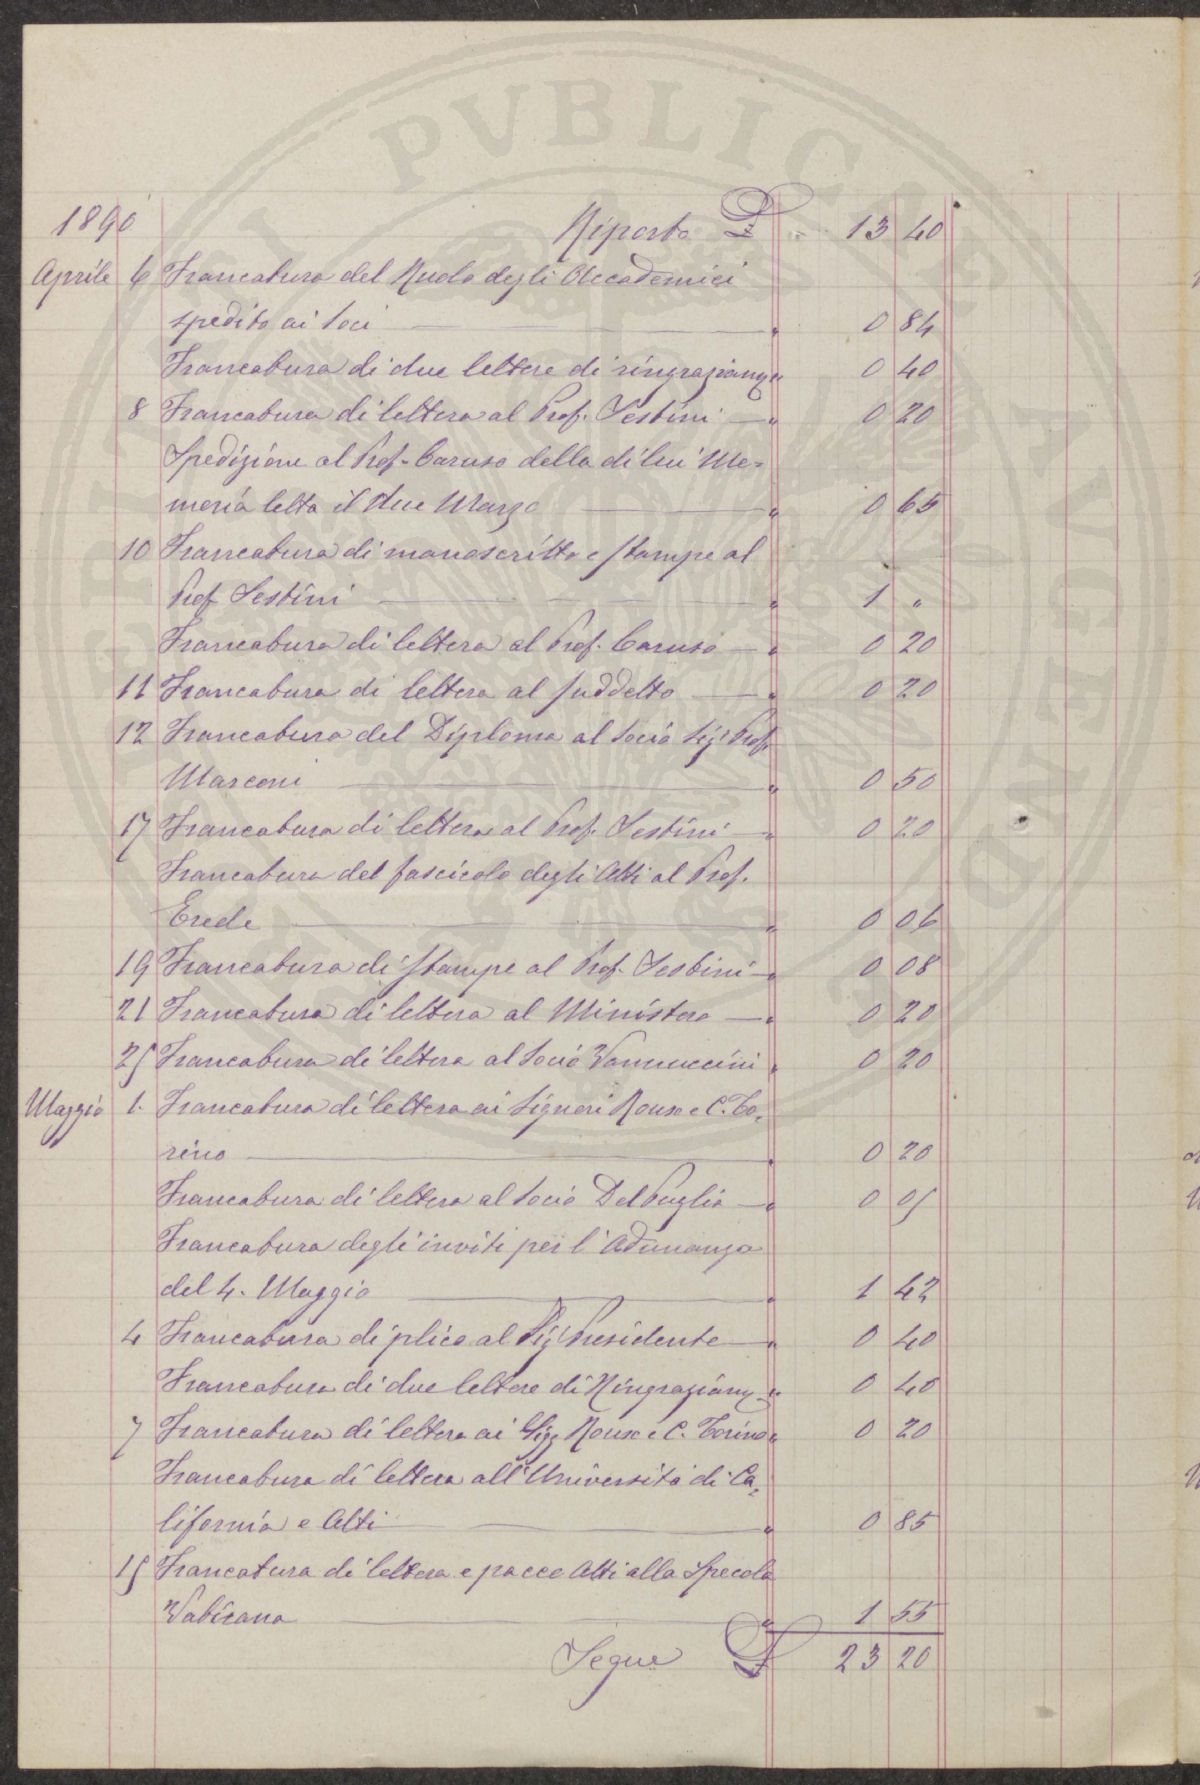 PVBLICAE
1890 Riporto £ 13 40
Aprile 6 Francatura del Ruolo degli Accademici
spedito ai Soci " 0 84
Francatura di due lettere di ringraziam. " 0 40
8 Francatura di lettera al Prof. Sestini " 0 20
Spedizione al Prof. Caruso della di lui Me=
moria letta il due Marzo " 0 65
10 Francatura di manoscritto e stampe al
Prof Sestini " 1 "
Francatura di lettera al Prof. Caruso " 0 20
11 Francatura di lettera al suddetto " 0 20
12 Francatura del Diploma al Socio Sigr Prof.
Marconi " 0 50
17 Francatura di lettera al Prof. Sestini " 0 20
Francatura del fascicolo degli Atti al Prof.
Erede " 0 06
19 Francatura di stampe al Prof. Sestini " 0 08
21 Francatura di lettera al Ministero " 0 20
25 Francatura di lettera al Socio Vannuccini " 0 20
Maggio 1. Francatura di lettera ai Signori Roux e C. To=
rino " 0 20
Francatura di lettera al Socio Del Puglia " 0 05
Francatura degli inviti per l'Adunanza
del 4. Maggio " 1 42
4 Francatura di plico al Sigr Presidente " 0 40
Francatura di due lettere di Ringraziam. " 0 40
7 Francatura di lettera ai Sigg Roux e C. Torino " 0 20
Francatura di lettera all'Università di Ca=
lifornia e Atti " 0 85
15 Francatura di lettera e pacco Atti alla Specola
Vaticana " 1 55
Segue £ 23 20